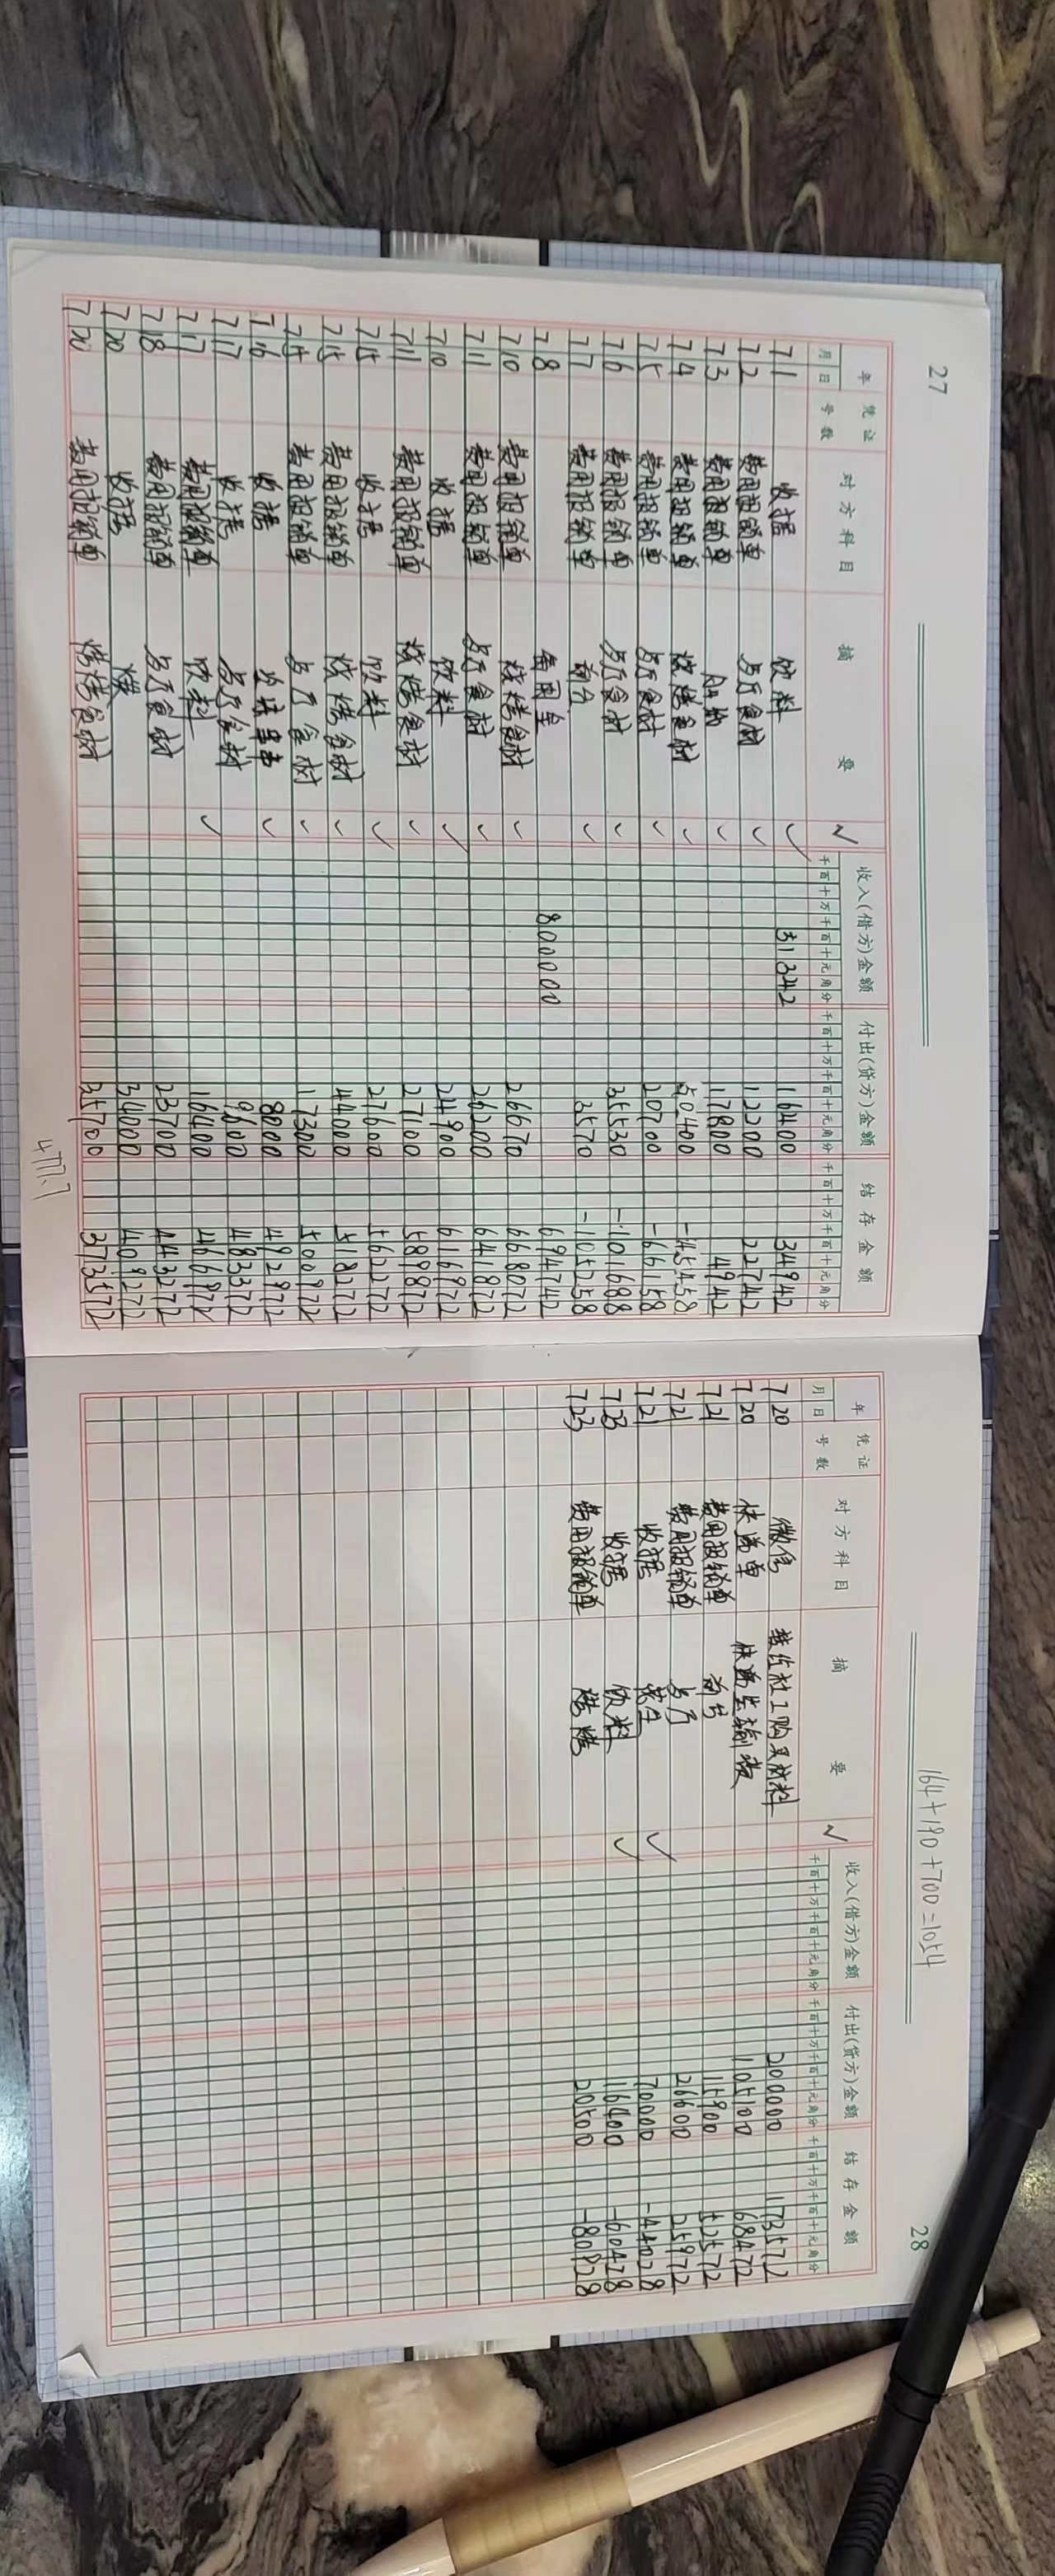 27
年 凭证 对方科目 摘要 √ 收入(借方)金额 付出(贷方)金额 结存金额
月 日 号数 千百十万千百十元角分 千百十万千百十元角分 千百十万千百十元角分
7 1 收据 饮料 ✓ 31342 16400 34942
7 2 费用报销单 与厅食材 ✓ 12200 22742
7 3 费用报销单 ✓ 17800 4942
7 4 费用报销单 烧烤食材 ✓ 50400 -45458
7 5 费用报销单 与厅食材 ✓ 20700 -66158
7 6 费用报销单 与厅食材 ✓ 35530 -101688
7 7 费用报销单 前台 ✓ 3570 -105258
7 8 备用金 800000 694742
7 10 费用报销单 烧烤食材 ✓ 26670 668072
7 11 费用报销单 与厅食材 ✓ 26200 641872
7 10 收据 饮料 ✓ 24900 616972
7 11 费用报销单 烧烤食材 ✓ 27100 589872
7 15 收据 饮料 ✓ 27600 562272
7 15 费用报销单 烧烤食材 ✓ 44000 518272
7 15 费用报销单 与厅食材 ✓ 17300 500972
7 16 收据 ✓ 8000 492972
7 17 收据 与厅食材 9600 483372
7 17 费用报销单 饮料 ✓ 16400 466972
7 18 费用报销单 与厅食材 23700 443272
7 20 收据 34000 409272
7 20 费用报销单 烧烤食材 35700 373572
477.7
164+190+700=1054
28
年 凭证 对方科目 摘要 √ 收入(借方)金额 付出(贷方)金额 结存金额
月 日 号数 千百十万千百十元角分 千百十万千百十元角分 千百十万千百十元角分
7 20 微信 转给社工购买材料 200000 173572
7 20 快递单 快递运输费 105100 68472
7 21 费用报销单 前台 15900 52572
7 21 费用报销单 与厅 26600 25972
7 21 收据 ✓ 70000 -44028
7 23 收据 饮料 ✓ 16400 -60428
7 23 费用报销单 烧烤 20500 -80928